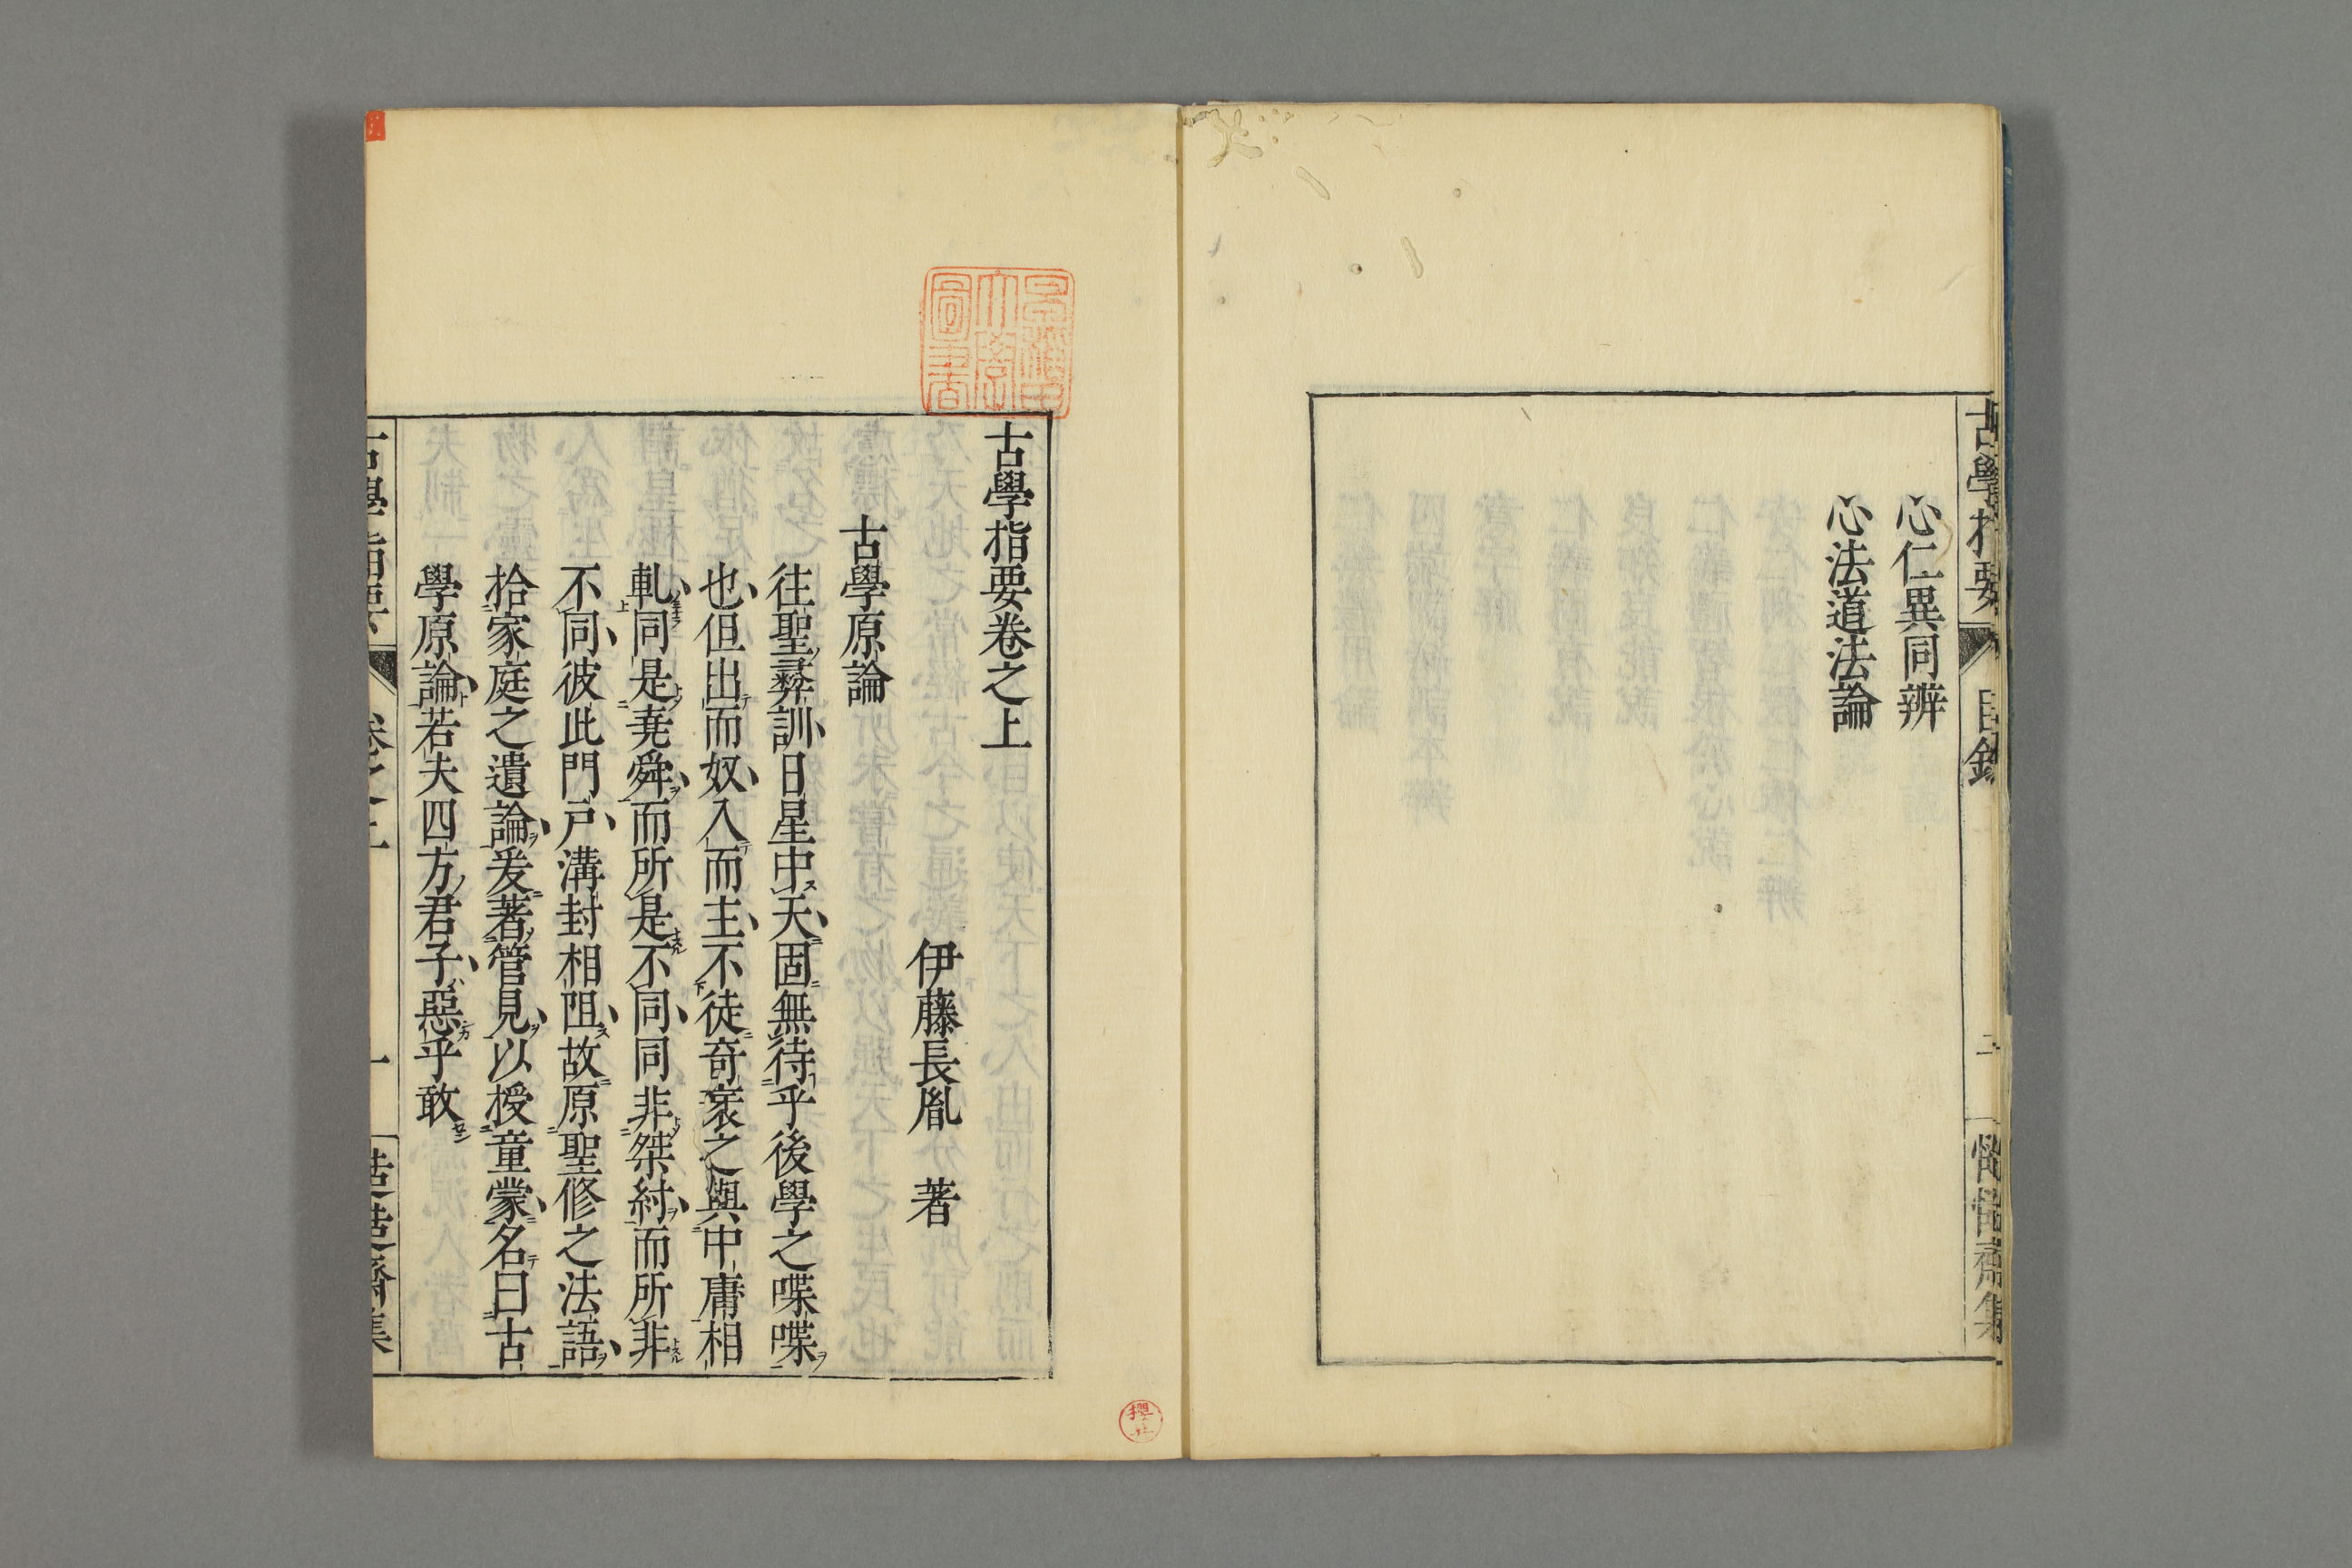 古學指要
目錄
二
慥慥齋集
心仁異同辨
心法道法論
早稻田大學圖書
古學指要卷之上
伊藤長胤 著
古學原論
往聖彛訓日星中天固無待乎後學之喋喋
也但出而奴入而主不徒奇衺之與中庸相
軋同是堯舜而所是不同同非桀紂而所非
不同彼此門戶溝封相阻故原聖修之法語
拾家庭之遺論爰著管見以授童蒙名曰古
學原論若夫四方君子惡乎敢
古學指要
卷之上
一
慥慥齋集